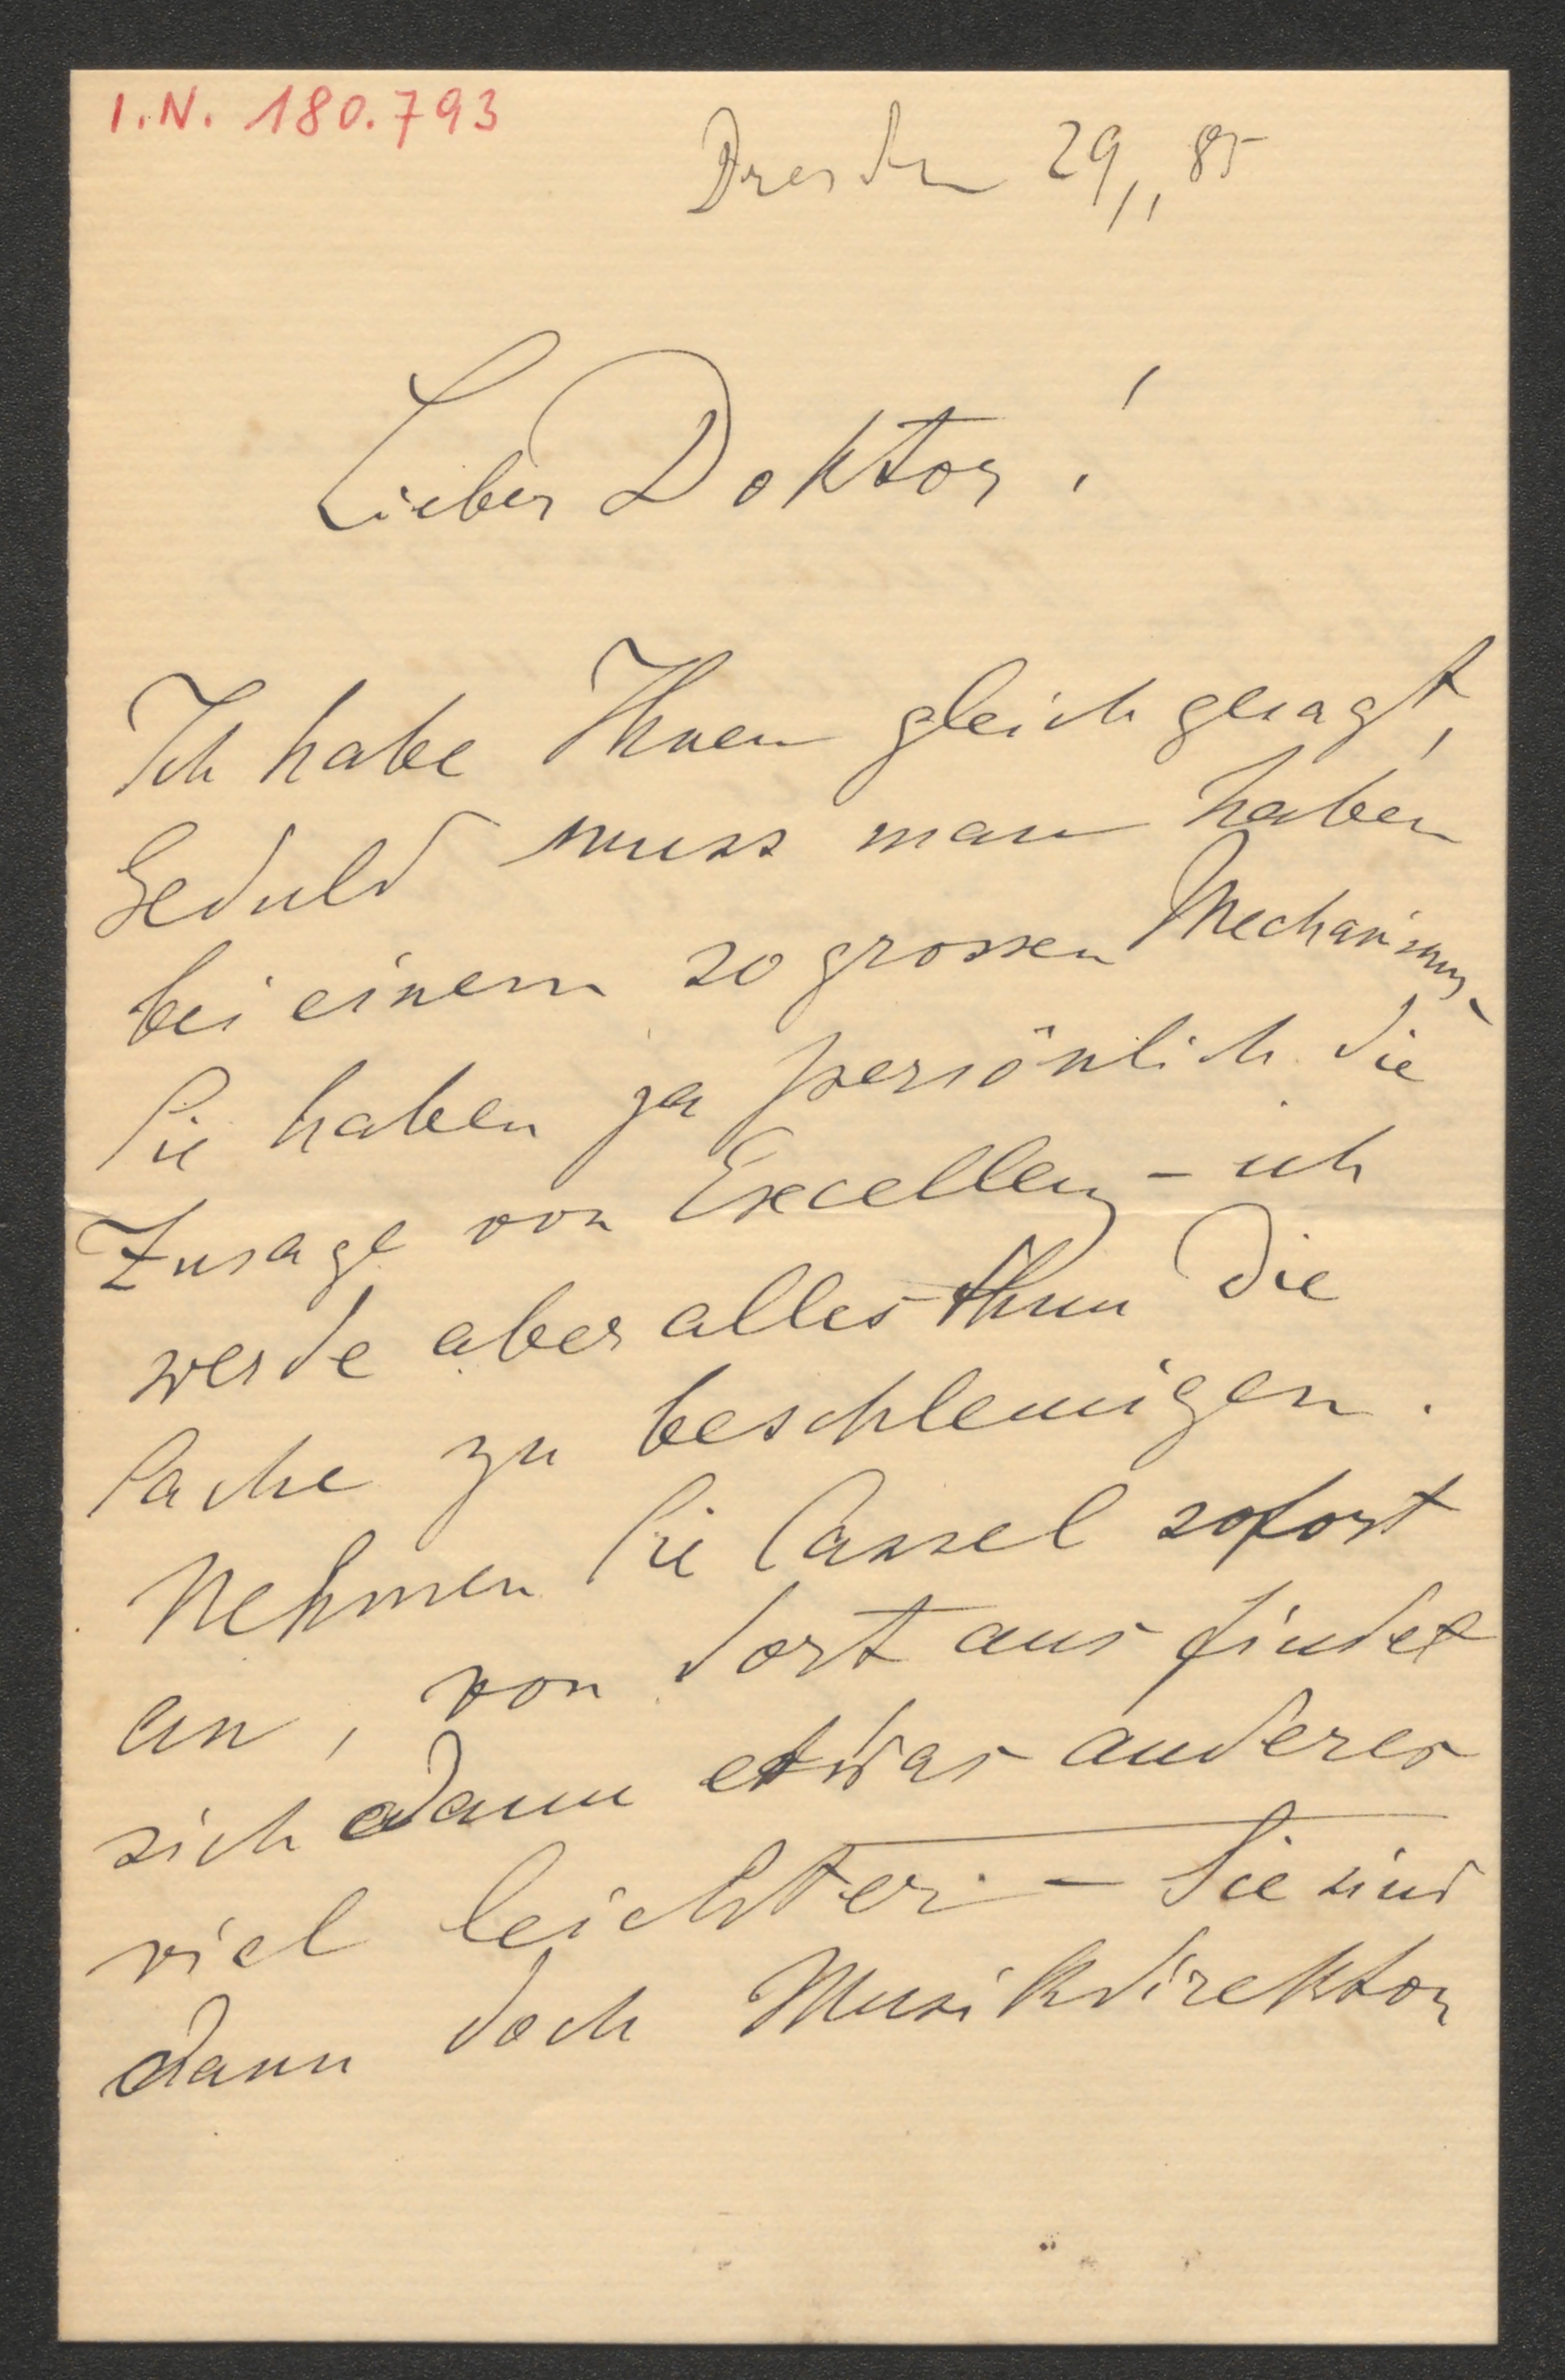 I.N. 180.793
Dresden 29/11 85
Lieber Doktor!
Ich habe Ihnen gleich gesagt,
Geduld muss man haben
bei einem so grossen Mechanismus,
Sie haben ja persönlich die
Zusage von Excellenz – ich
werde aber alles thun die
Sache zu beschleunigen.
Nehmen Sie Cassel sofort
an, von dort aus findet
sich dann etwas anderes
viel leichter. – Sie sind
dann doch Musikdirektor